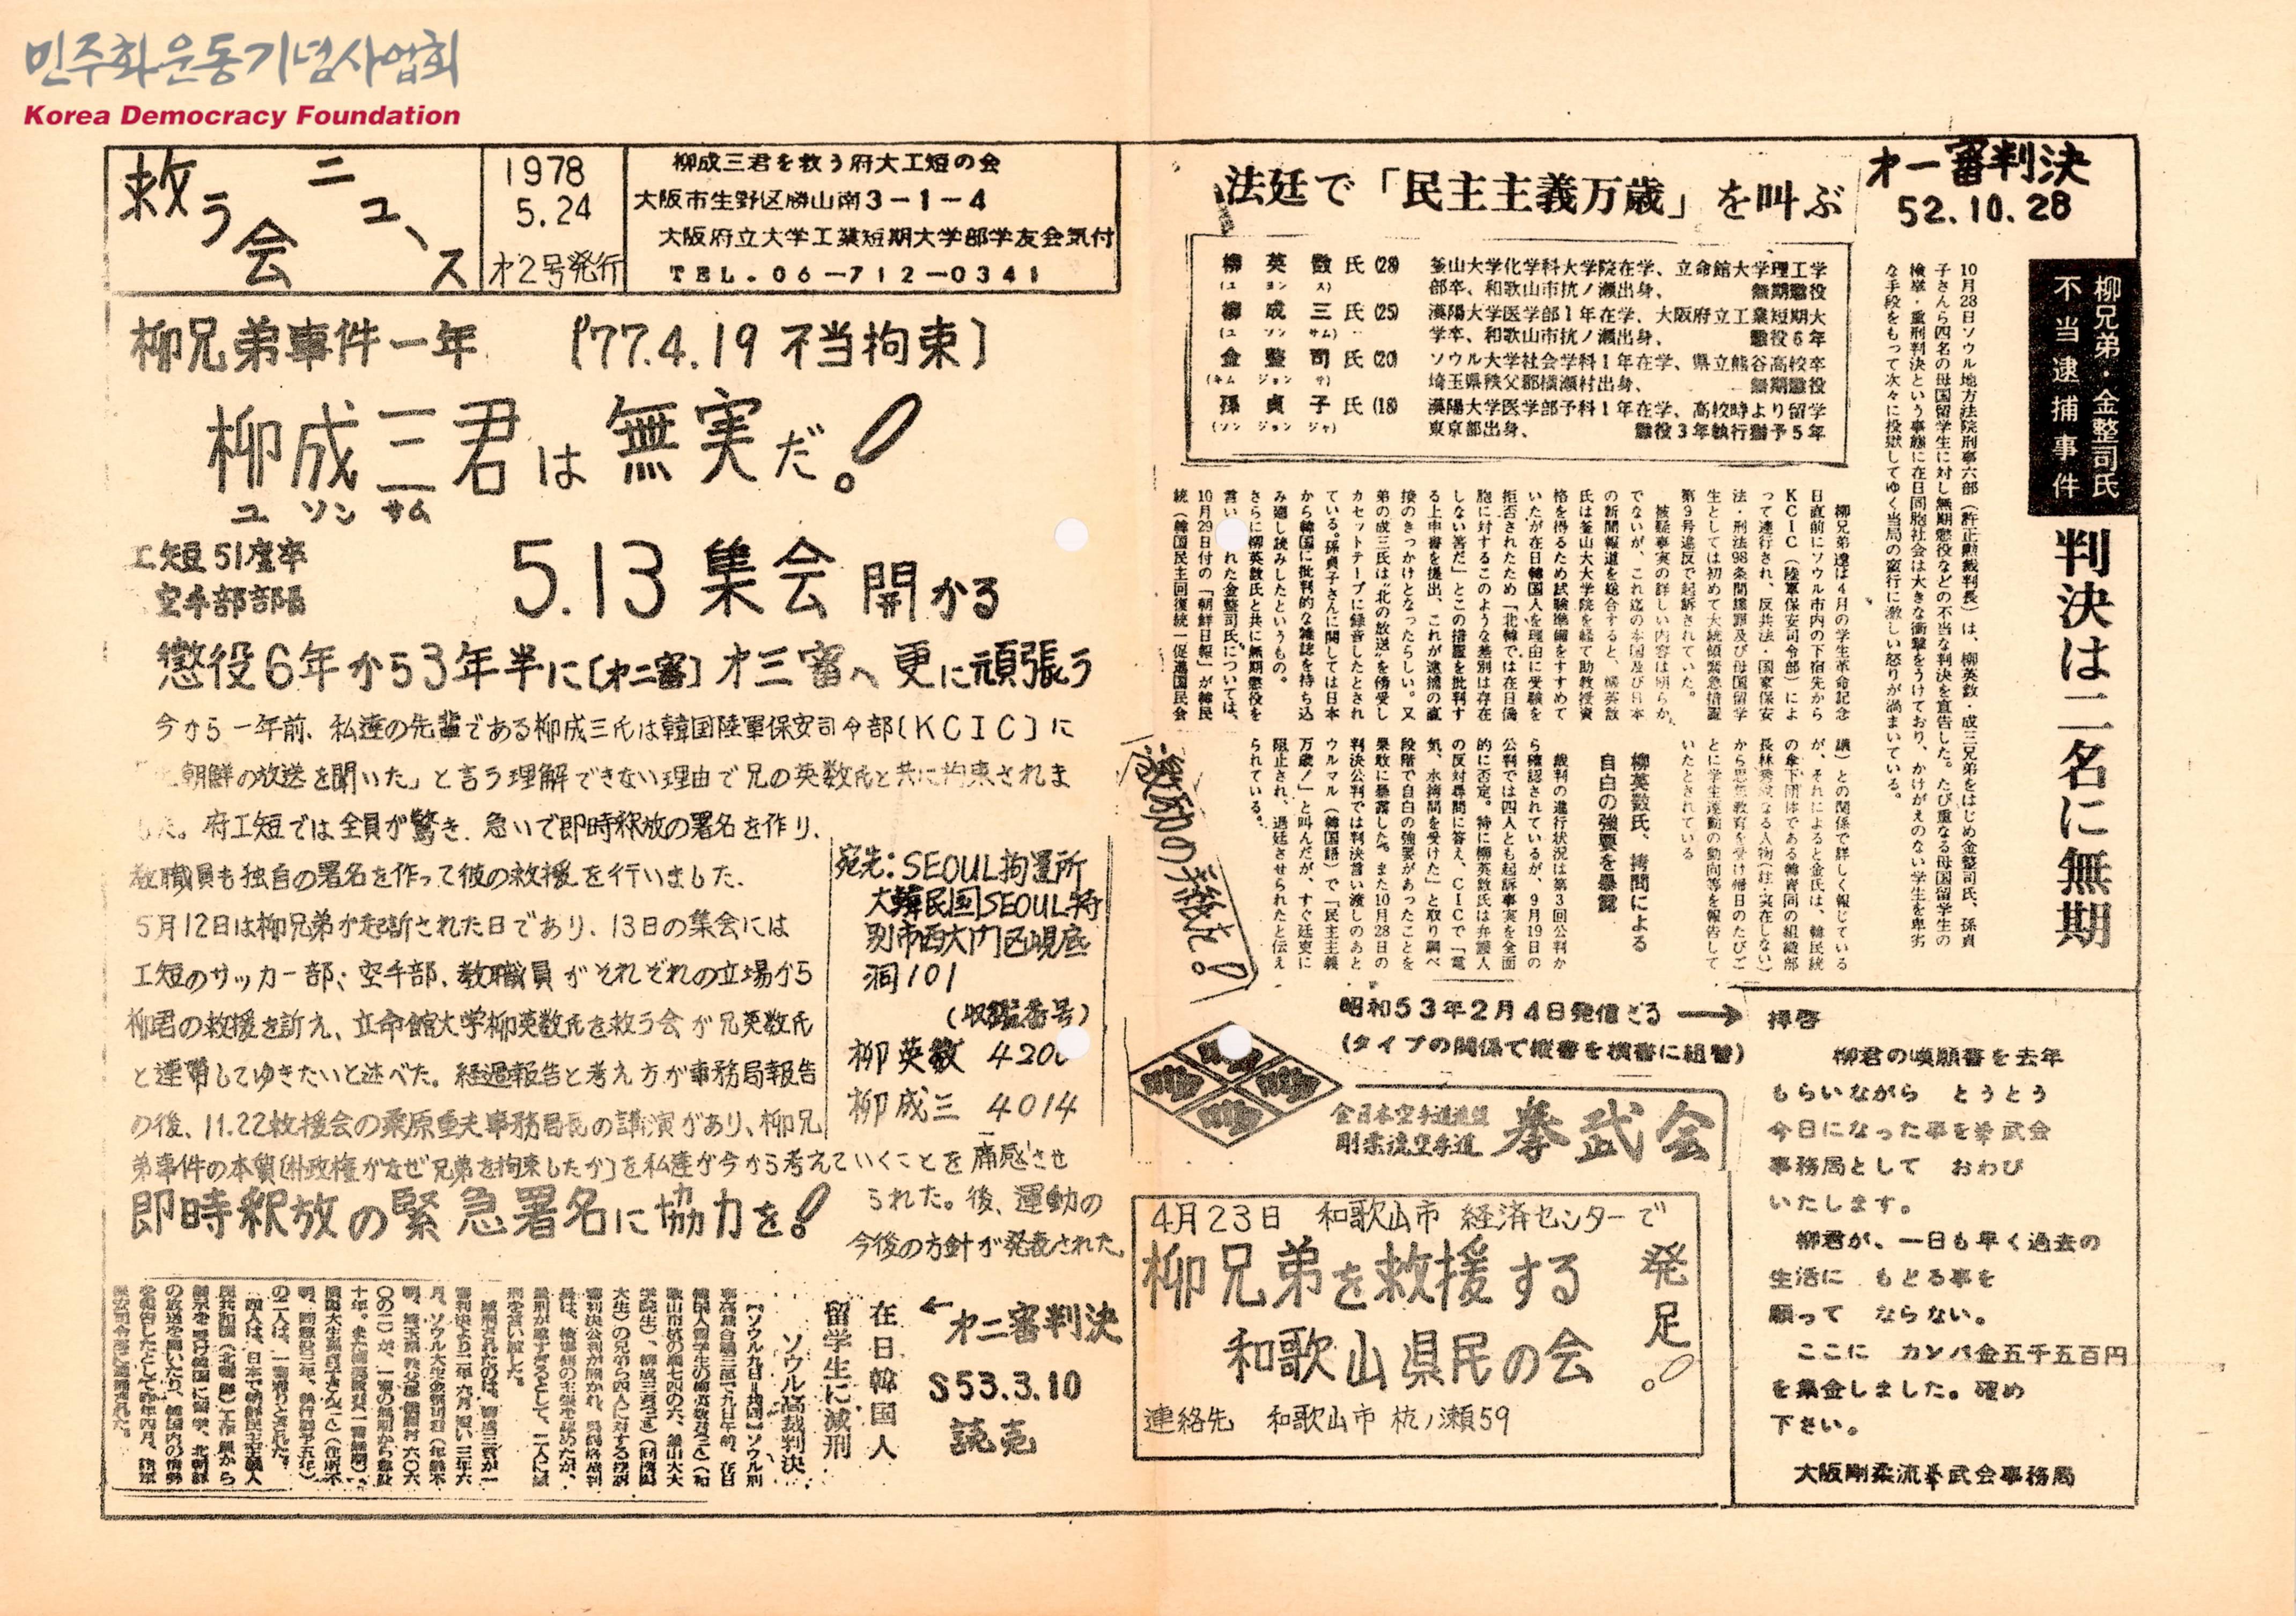 민주화운동기념사업회
Korea Democracy Foundation
救う会ニュース
1978
5.24
才2号発行
柳成三君を救う府大工短の会
大阪市生野区勝山南3-1-4
大阪府立大学工業短期大学部学友会気付
TEL.06-712-0341
柳兄弟事件一年 〔'77.4.19 不当拘束〕
柳成三君は無実だ!
ユ ソン サム
工短51度卒
空手部部長
5.13 集会 開かる
懲役6年から3年半に〔才二審〕才三審へ 更に頑張う
今から一年前、私達の先輩である柳成三氏は韓国陸軍保安司令部〔KCIC〕に
朝鮮の放送を聞いた」と言う理解できない理由で兄の英数氏と共に拘束されま
した。府工短では全員が驚き、急いで即時釈放の署名を作り、
教職員も独自の署名を作って彼の救援を行いました。
5月12日は柳兄弟が起訴された日であり、13日の集会には
工短のサッカー部、空手部、教職員がそれぞれの立場から
柳君の救援を訴え、立命館大学柳英数氏を救う会が兄英数氏
と連帯してゆきたいと述べた。経過報告と考え方が事務局報告
の後、11.22救援会の桑原重夫事務局長の講演があり、柳兄
弟事件の本質〔朴政権がなぜ兄弟を拘束したか〕を私達が今から考えていくことを痛感させ
られた。後、運動の
今後の方針が発表された。
即時釈放の緊急署名に協力を!
宛先:SEOUL拘置所
大韓民国SEOUL特
別市西大門区峴底
洞101
(収鑑番号)
柳英数 420
柳成三 4014
激励の手紙を!
←才二審判決
S53.3.10
読売
在日韓国人
留学生に減刑
ソウル高裁判決
法廷で「民主主義万歳」を叫ぶ
才一審判決
52.10.28
柳英数氏(28) 釜山大学化学科大学院在学、立命館大学理工学
(ユ ヨン ス) 部卒、和歌山市杭ノ瀬出身、 無期懲役
柳成三氏(25) 漢陽大学医学部1年在学、大阪府立工業短期大
(ユ ソン サム) 学卒、和歌山市杭ノ瀬出身、 懲役6年
金整司氏(20) ソウル大学社会学科1年在学、県立熊谷高校卒
(キム ジョン サ) 埼玉県秩父郡横瀬村出身、 無期懲役
孫貞子氏(18) 漢陽大学医学部予科1年在学、高校時より留学
(ソン ジョン ジャ) 東京都出身、 懲役3年執行猶予5年
柳兄弟・金整司氏
不当逮捕事件
判決は二名に無期
10月28日ソウル地方法院刑事六部(許正勲裁判長)は、柳英数・成三兄弟をはじめ金整司氏、孫貞
子さんら四名の母国留学生に対し無期懲役などの不当な判決を宣告した。たび重なる母国留学生の
検挙・重刑判決という事態に在日同胞社会は大きな衝撃をうけており、かけがえのない学生を卑劣
な手段をもって次々に投獄してゆく当局の蛮行に激しい怒りが渦まいている。
柳兄弟達は4月の学生革命記念
日直前にソウル市内の下宿先から
KCIC(陸軍保安司令部)によ
って連行され、反共法・国家保安
法・刑法98条間諜罪及び母国留学
生としては初めて大統領緊急措置
第9号違反で起訴されていた。
被疑事実の詳しい内容は明らか
でないが、これ迄の本国及び日本
の新聞報道を総合すると、柳英数
氏は釜山大大学院を経て助教授資
格を得るため試験準備をすすめて
いたが在日韓国人を理由に受験を
拒否されたため「北韓では在日僑
胞に対するこのような差別は存在
しない筈だ」とこの措置を批判す
る上申書を提出、これが逮捕の直
接のきっかけとなったらしい。又
弟の成三氏は"北の放送"を傍受し
カセットテープに録音したとされ
ている。孫貞子さんに関しては日本
から韓国に批判的な雑誌を持ち込
み廻し読みしたというもの。
さらに柳英数氏と共に無期懲役を
言い れた金整司氏については、
10月29日付の「朝鮮日報」が韓民
統(韓国民主回復統一促進国民会
議)との関係で詳しく報じている
が、それによると金氏は、韓民統
の傘下団体である韓青同の組織部
長林 なる人物(注・実在しない)
から思想教育を受け帰日のたびご
とに学生運動の動向等を報告して
いたとされている
柳英数氏、拷問による
自白の強要を暴露
裁判の進行状況は第3回公判か
ら確認されているが、9月19日の
公判では四人とも起訴事実を全面
的に否定。特に柳英数氏は弁護人
の反対尋問に答え、CICで「電
気、水拷問を受けた」と取り調べ
段階で自白の強要があったことを
果敢に暴露した。また10月28日の
判決公判では判決言い渡しのあと
ウルマル(韓国語)で「民主主義
万歳!」と叫んだが、すぐ廷吏に
阻止され、退廷させられたと伝え
られている。
昭和53年2月4日発信どうり→
(タイプの関係で縦書を横書に組替)
全日本空手道連盟
剛柔流空手道 拳武会
4月23日 和歌山市 経済センターで
柳兄弟を救援する
和歌山県民の会
発足!
連絡先 和歌山市 杭ノ瀬59
拝啓
柳君の嘆願書を去年
もらいながら とうとう
今日になった事を拳武会
事務局として おわび
いたします。
柳君が、一日も早く過去の
生活に もどる事を
願って ならない。
ここに カンパ金五千五百円
を集金しました。確め
下さい。
大阪剛柔流拳武会事務局